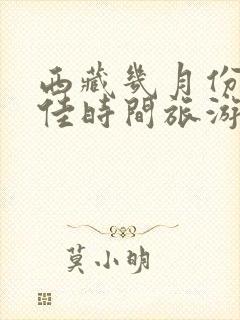 西藏幾月份
佳時間旅游
莫小明